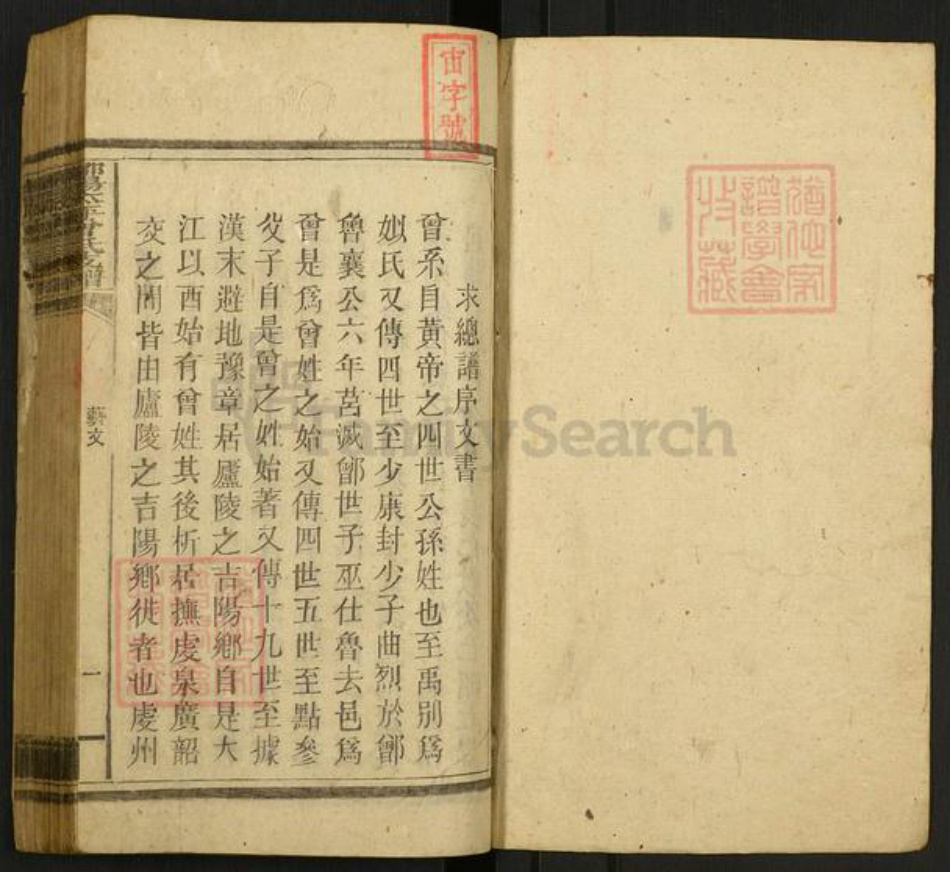 宙字號
求總譜序文書
曾系自黃帝之四世公孫姓也至禹别爲
姒氏又傳四世至少康封少子曲烈於鄫
魯襄公六年莒滅鄫世子巫仕魯去邑爲
曾是爲曾姓之始又傳四世五世至點參
父子自是曾之姓始著又傳十九世至據
漢末避地豫章居廬陵之吉陽鄉自是大
江以西始有曾姓其後析居撫虔泉廣韶
交之間皆由廬陵之吉陽鄉徙者也虔州
藝文
一
譜學會
收藏
FamilySearch